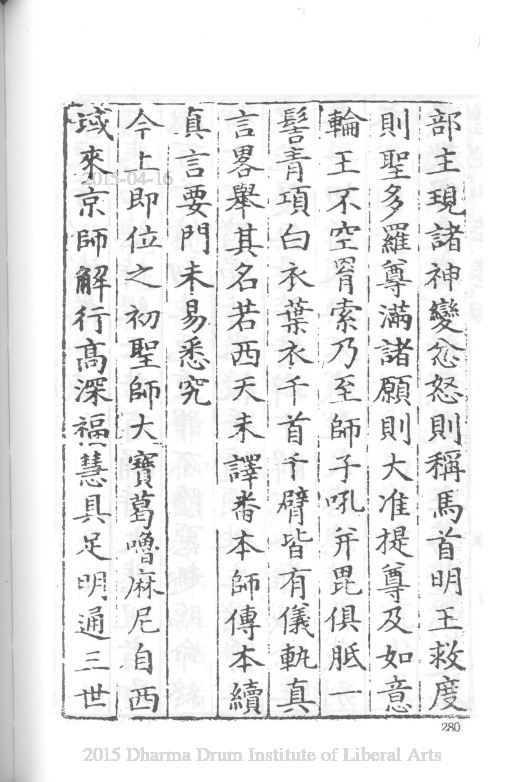 部主現諸神變忿怒則稱馬首明王救度
則聖多羅尊滿諸願則大准提尊及如意
輪王不空罥索乃至師子吼并毘俱胝一
髻青項白衣葉衣千首千臂皆有儀軌真
言畧舉其名若西天未譯畨本師傳本續
真言要門未易悉究
今上即位之初聖師大寶葛嚕麻尼自西
域來京師解行高深福慧具足明通三世
280
2015-04-16
2015 Dharma Drum Institute of Liberal Arts